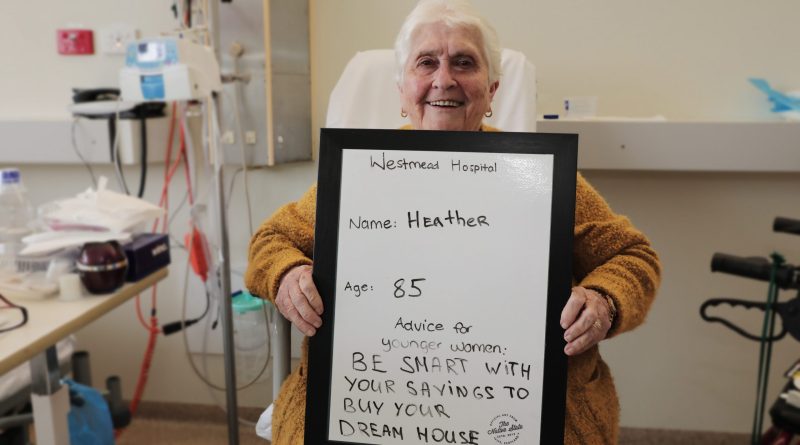 Westmead Hospital
Name: HEATHER
Age: 85
Advice for
younger women:
BE SMART WITH
YOUR SAVINGS TO
BUY YOUR
DREAM HOUSE
The
Native State